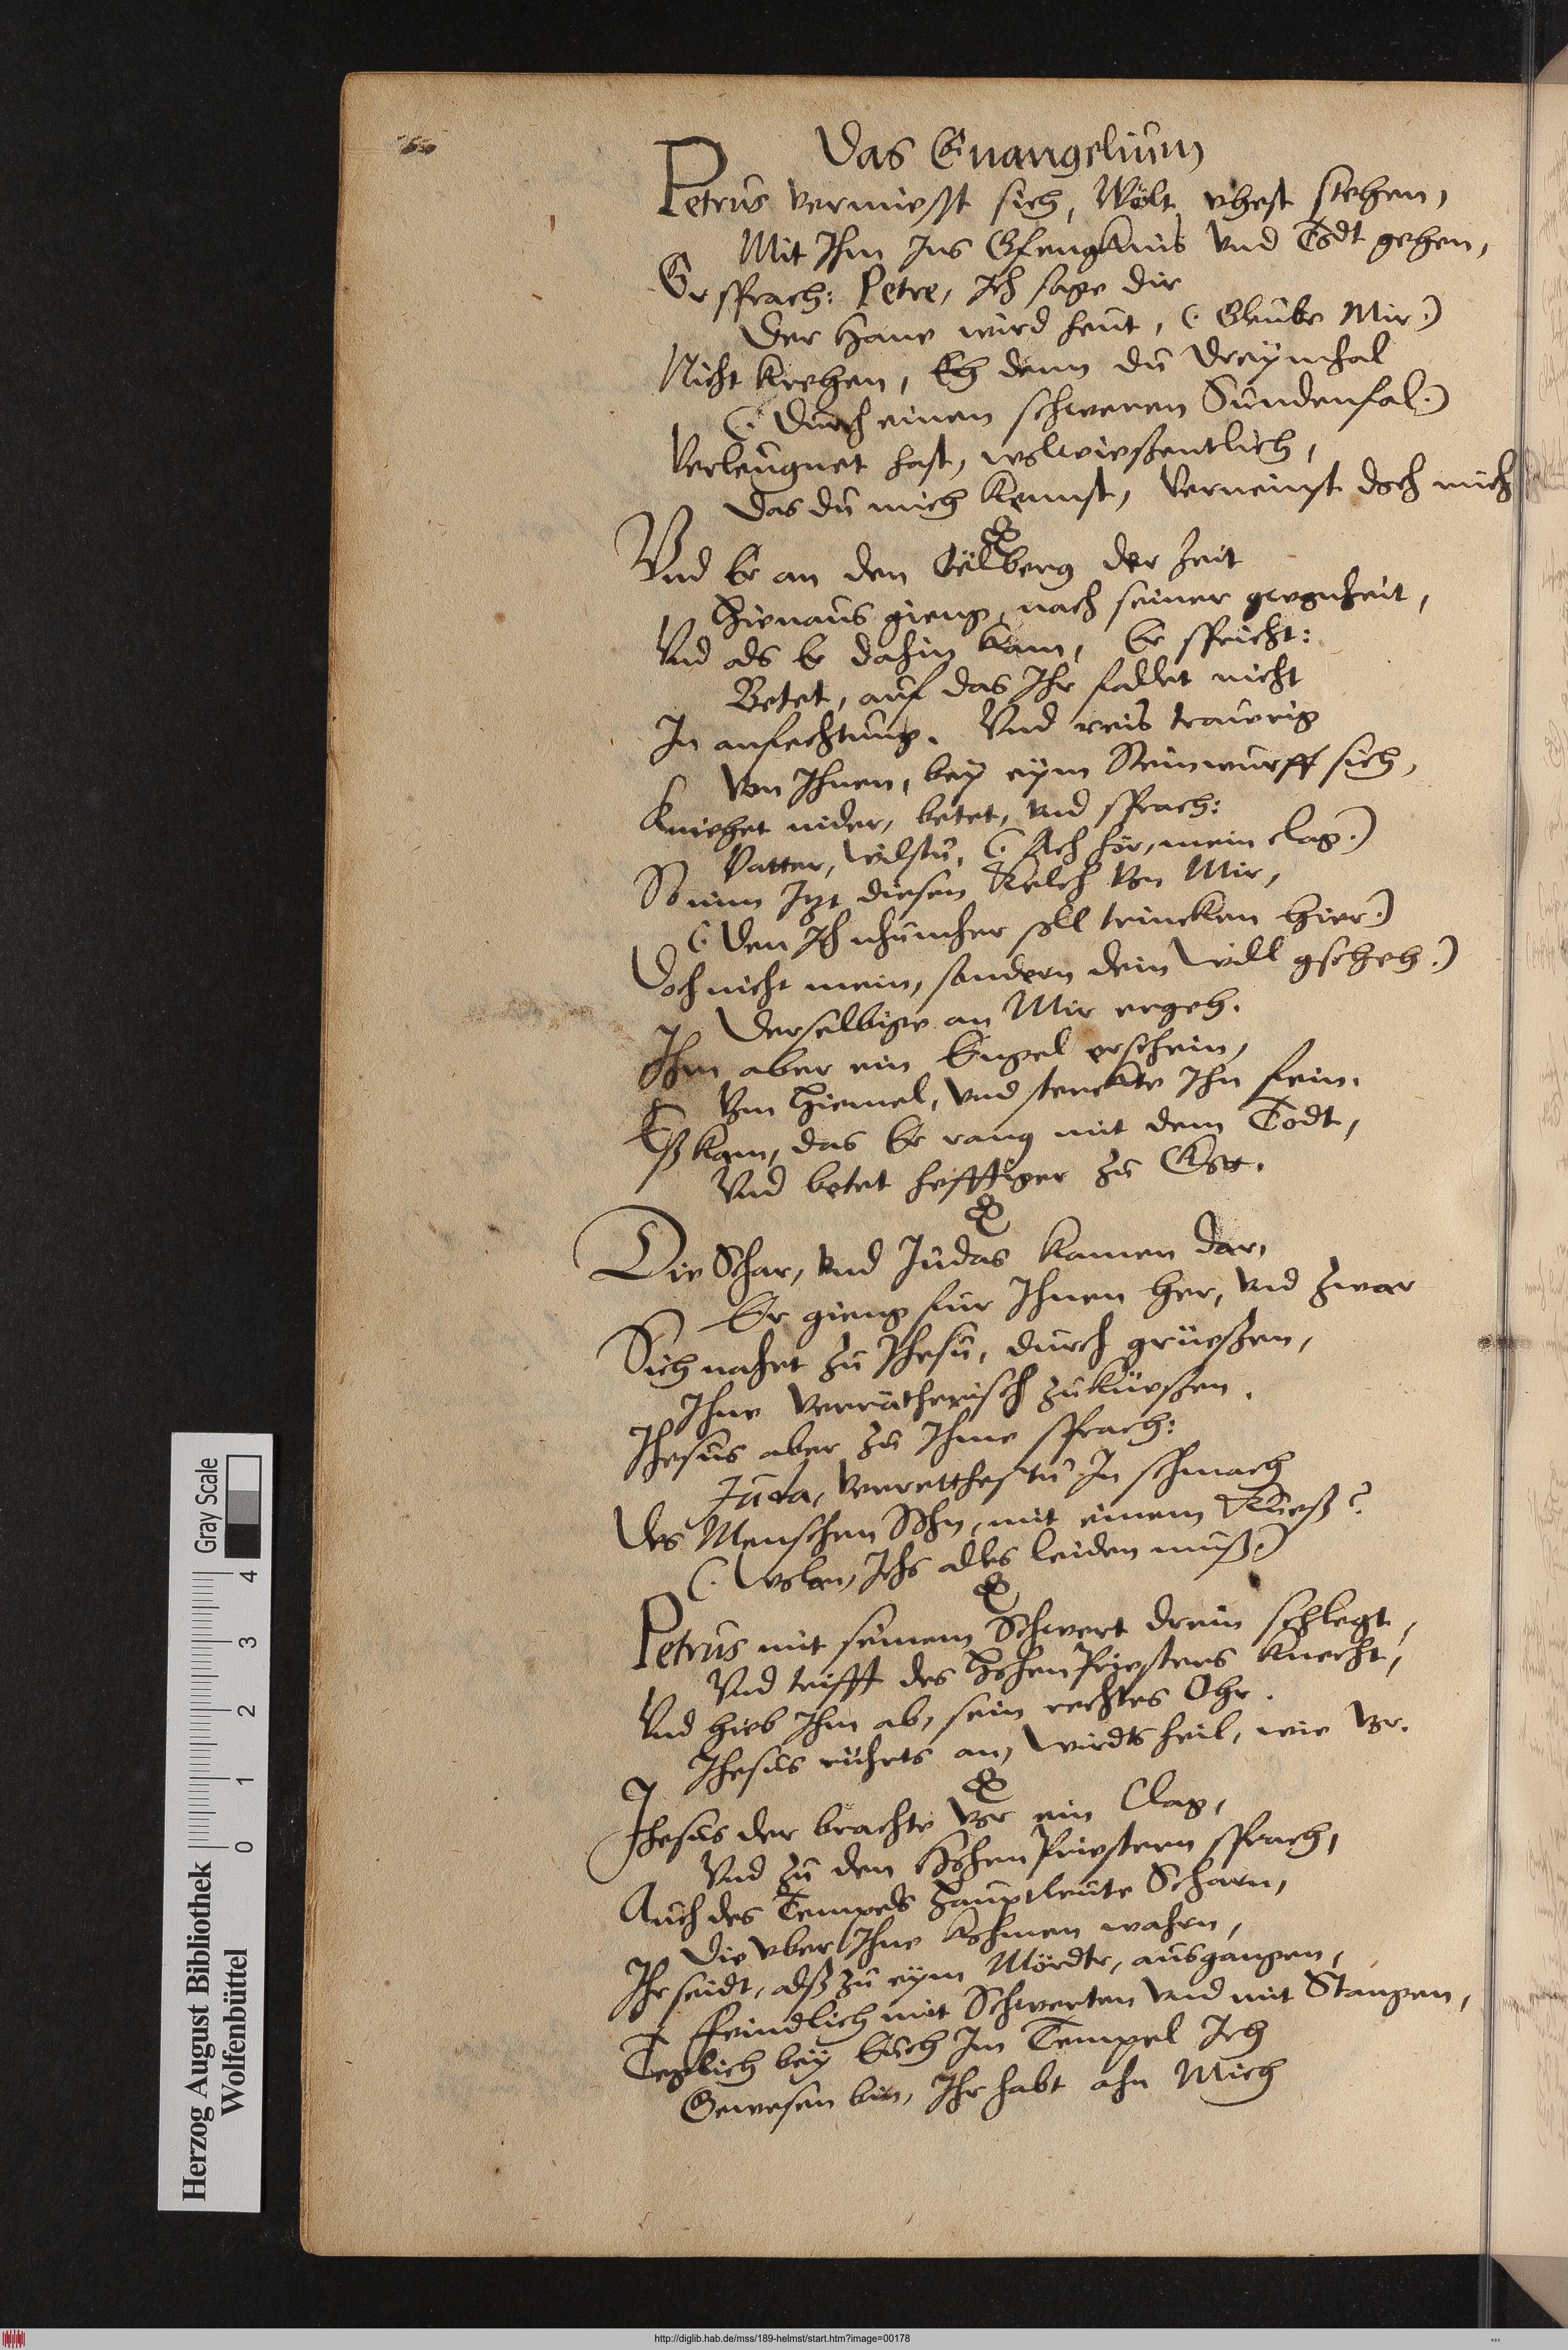 Das Euangelium
Petrus vermiesst sich, Wölt vhest stehen,
Mit Ihm Ins Gfengknis vnd Todt gehen,
Er sprach: Petre, Ich sage dir
Der Hane wird heut, (: Gleube Mir:)
Nicht krehen, Eh denn du dreymhal
(: Durch einen schweren Sündenfal:)
Verleugnet hast, wolwießentlich,
Das du mich kennst, Verneinst doch mich
Vnd Er an den Oelberg der Zeit
Hienaus gieng, nach seiner gwonheit,
Vnd als Er dahin kam, Er spricht:
Betet, auf das Ihr fallet nicht
In anfechtung. Vnd reis traurig
Von Ihnen, bey eym Steinwurff sich,
Kniehet nider, betet, vnd sprach:
Vatter, wilstu, (: Ach hör, mein clag:)
So nim Izt diesen Kelch von Mir,
(: Den Ich nhumher soll trincken hier:)
Doch nicht mein, sondern dein will gscheh:)
Derselbige an Mir ergeh.
Ihm aber ein Engel erschein,
Vom Hiemel, vnd sterckte Ihn fein.
Eß kam, das Er rang mit dem Todt,
Vnd betet hefftiger zu Gott.
Die Schar, vnd Judas kamen dar,
Er gieng für Ihnen her, vnd zwar
Sich nahet zu Jhesu, durch grüeßen,
Ihne verrätherisch zuküeßen.
Jhesus aber zu Ihme sprach:
Juda, verretthestu In schmach
Des Menschen Sohn, mit einem Kueß?
(: Wolan, Ichs alles leiden muß:)
Petrus mit seinem Schwert drein schlegt,
Vnd trifft des HohenPriesters Knecht,
Vnd hieb Ihm ab, sein rechtes Ohr.
Jhesus rührts an, wirdts heil, wie vor.
Jhesus der brachte vor ein Clag,
Vnd zu den HohenPriestern sprach,
Auch des Tempels Hauptleute Scharn,
Die vber Ihne kohmen wahrn,
Ihr seidt, alß zu eym Mördtr, ausgangen,
Feindlich mit Schwerten vnd mit Stangen,
Teglich bey Euch Im Tempel Ich
Gewesen bin, Ihr habt ahn Mich
Herzog August Bibliothek
Wolfenbüttel
0 1 2 3 4
Gray Scale
http://diglib.hab.de/mss/189-helmst/start.htm?image=00178